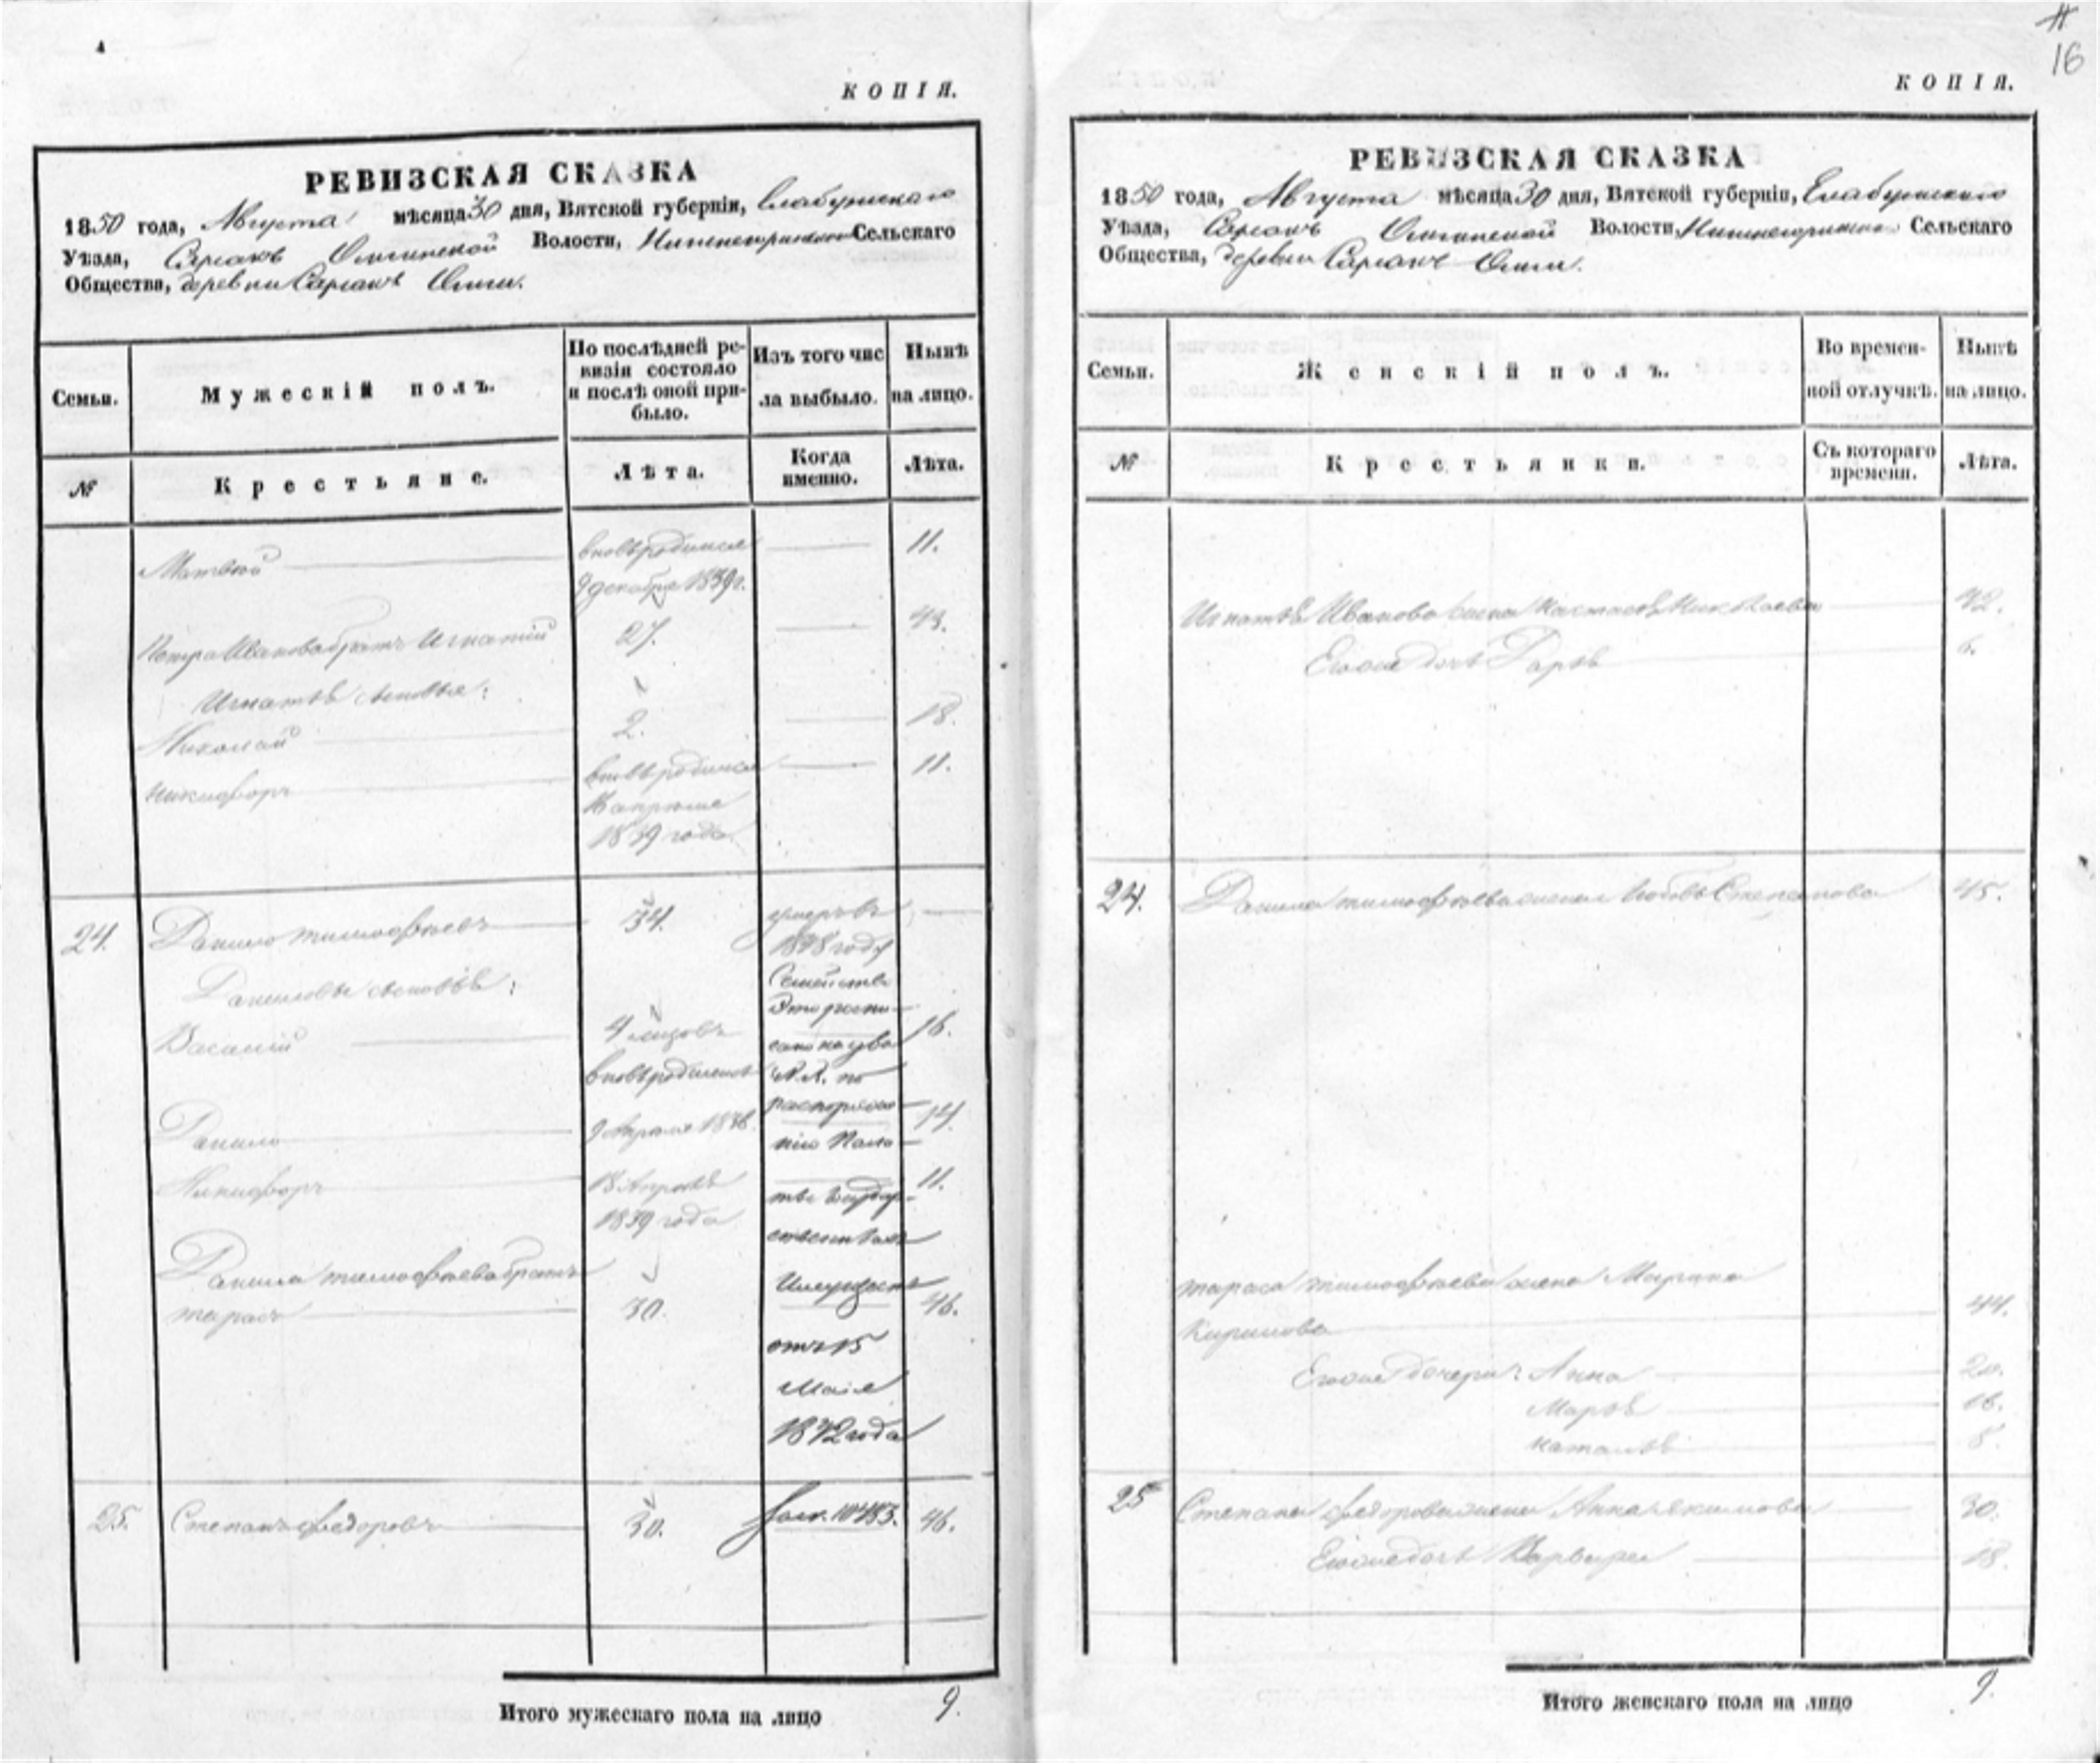 КОПІЯ.
РЕВИЗСКАЯ СКАЗКА
1850 года, Августа мѣсяца 30 дня, Вятской губерніи, Елабужскаго
Уѣзда, Волости, Сельскаго
Общества, деревни Сарсакъ Омги.
Семьи.
Мужескій полъ.
По послѣдней ре-
визіи состояло
и послѣ оной при-
было.
Изъ того чис
ла выбыло.
Нынѣ
на лицо.
№
Крестьяне.
Лѣта.
Когда
именно.
Лѣта.
Матвей вновьродился 11.
9 декабря 1839г.
Петра Иванова братъ Игнатій 27. 43.
Игнатья сыновья:
Николай 2. 18.
Никифоръ вновьродился 11.
1839 года
24. Данило тимофеевъ 34. умеръ въ
1848 году
Даниловы сыновья:
Василій 4 16.
вновьродились
Данило 9 Апреля 1836. 14.
Никифоръ 18 Апреля 11.
1839 года
Данила тимофеева братъ
тарасъ 30. 46.
Семейство
Это
по
распоряже-
нію Пала-
ты Государ-
ственныхъ
Имуществъ
отъ 15
Мая
1872 года
25. Степанъ федоровъ 30. 10483. 46.
Итого мужескаго пола на лицо 9.
16
КОПІЯ.
РЕВИЗСКАЯ СКАЗКА
1850 года, Августа мѣсяца 30 дня, Вятской губерніи, Елабужскаго
Уѣзда, Волости, Сельскаго
Общества, деревни Сарсакъ Омги.
Семьи.
Женскій полъ.
Во времен-
ной отлучкѣ.
Нынѣ
на лицо.
№
Крестьянки.
Съ котораго
времени.
Лѣта.
Игнатья Иванова жена Настасья Николаева 42.
Егоже дочь Дарья 6.
24. Данила тимофеева жена Любовь Степанова 45.
тараса тимофеева жена Марина
Кирилова 44.
Егоже дочери: Анна 20.
Марья 16.
наталья 8.
25 Степана федорова жена Анна екимова 30.
Егоже дочь Варвара 18.
Итого женскаго пола на лицо 9.